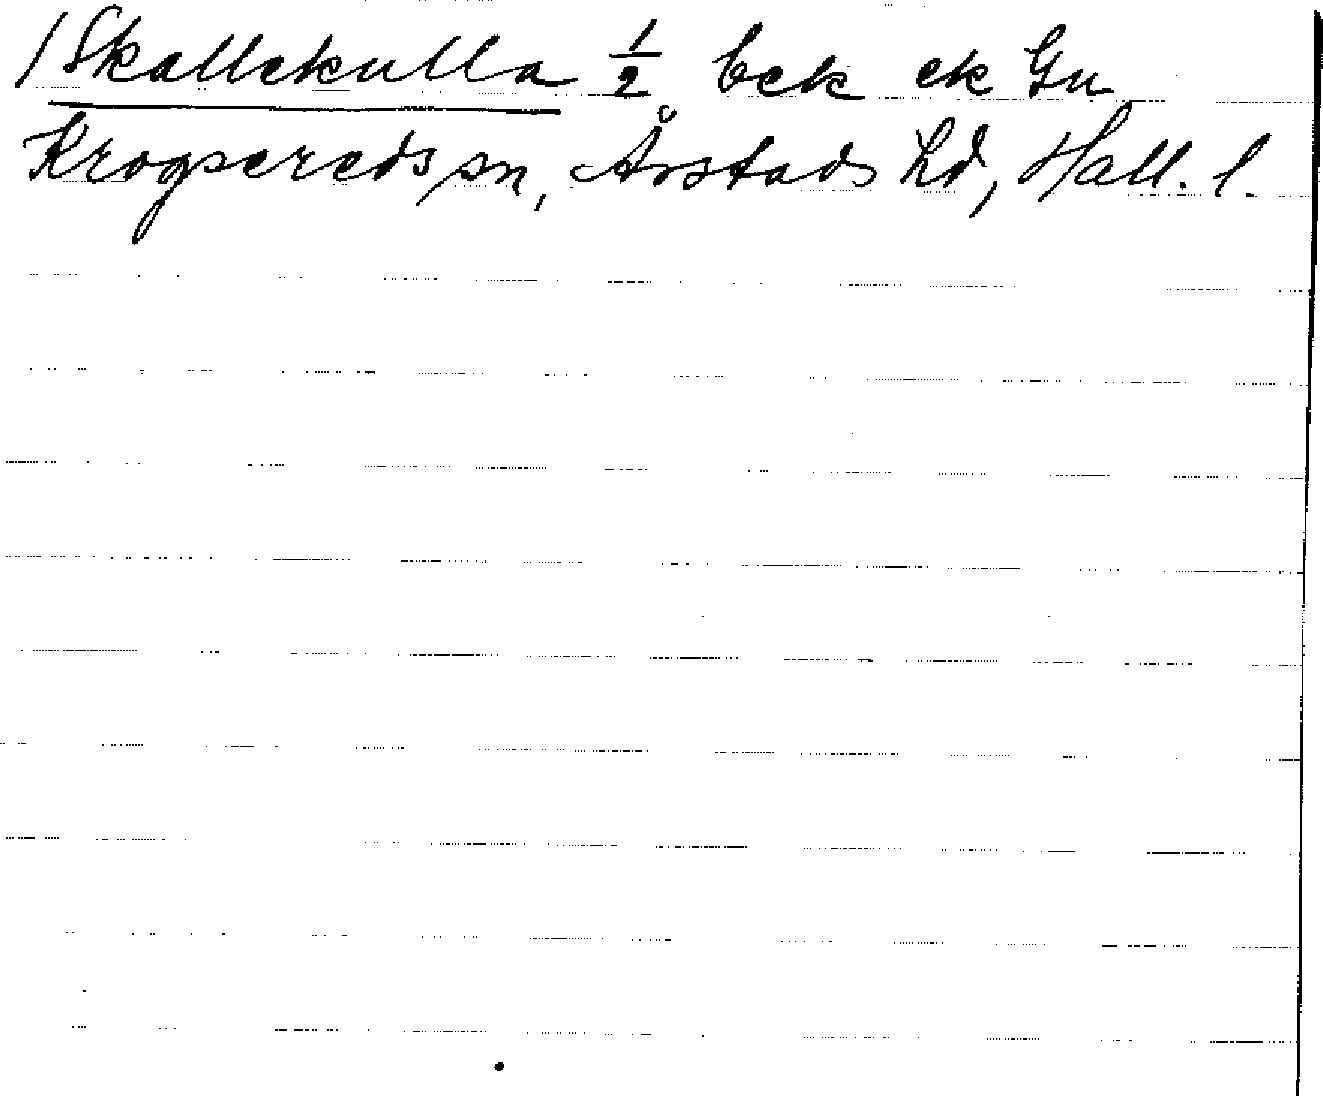 /Skallekulla 1/2 bek ek Gu
Krogsereds sn, Årstads hd, Hall. l.